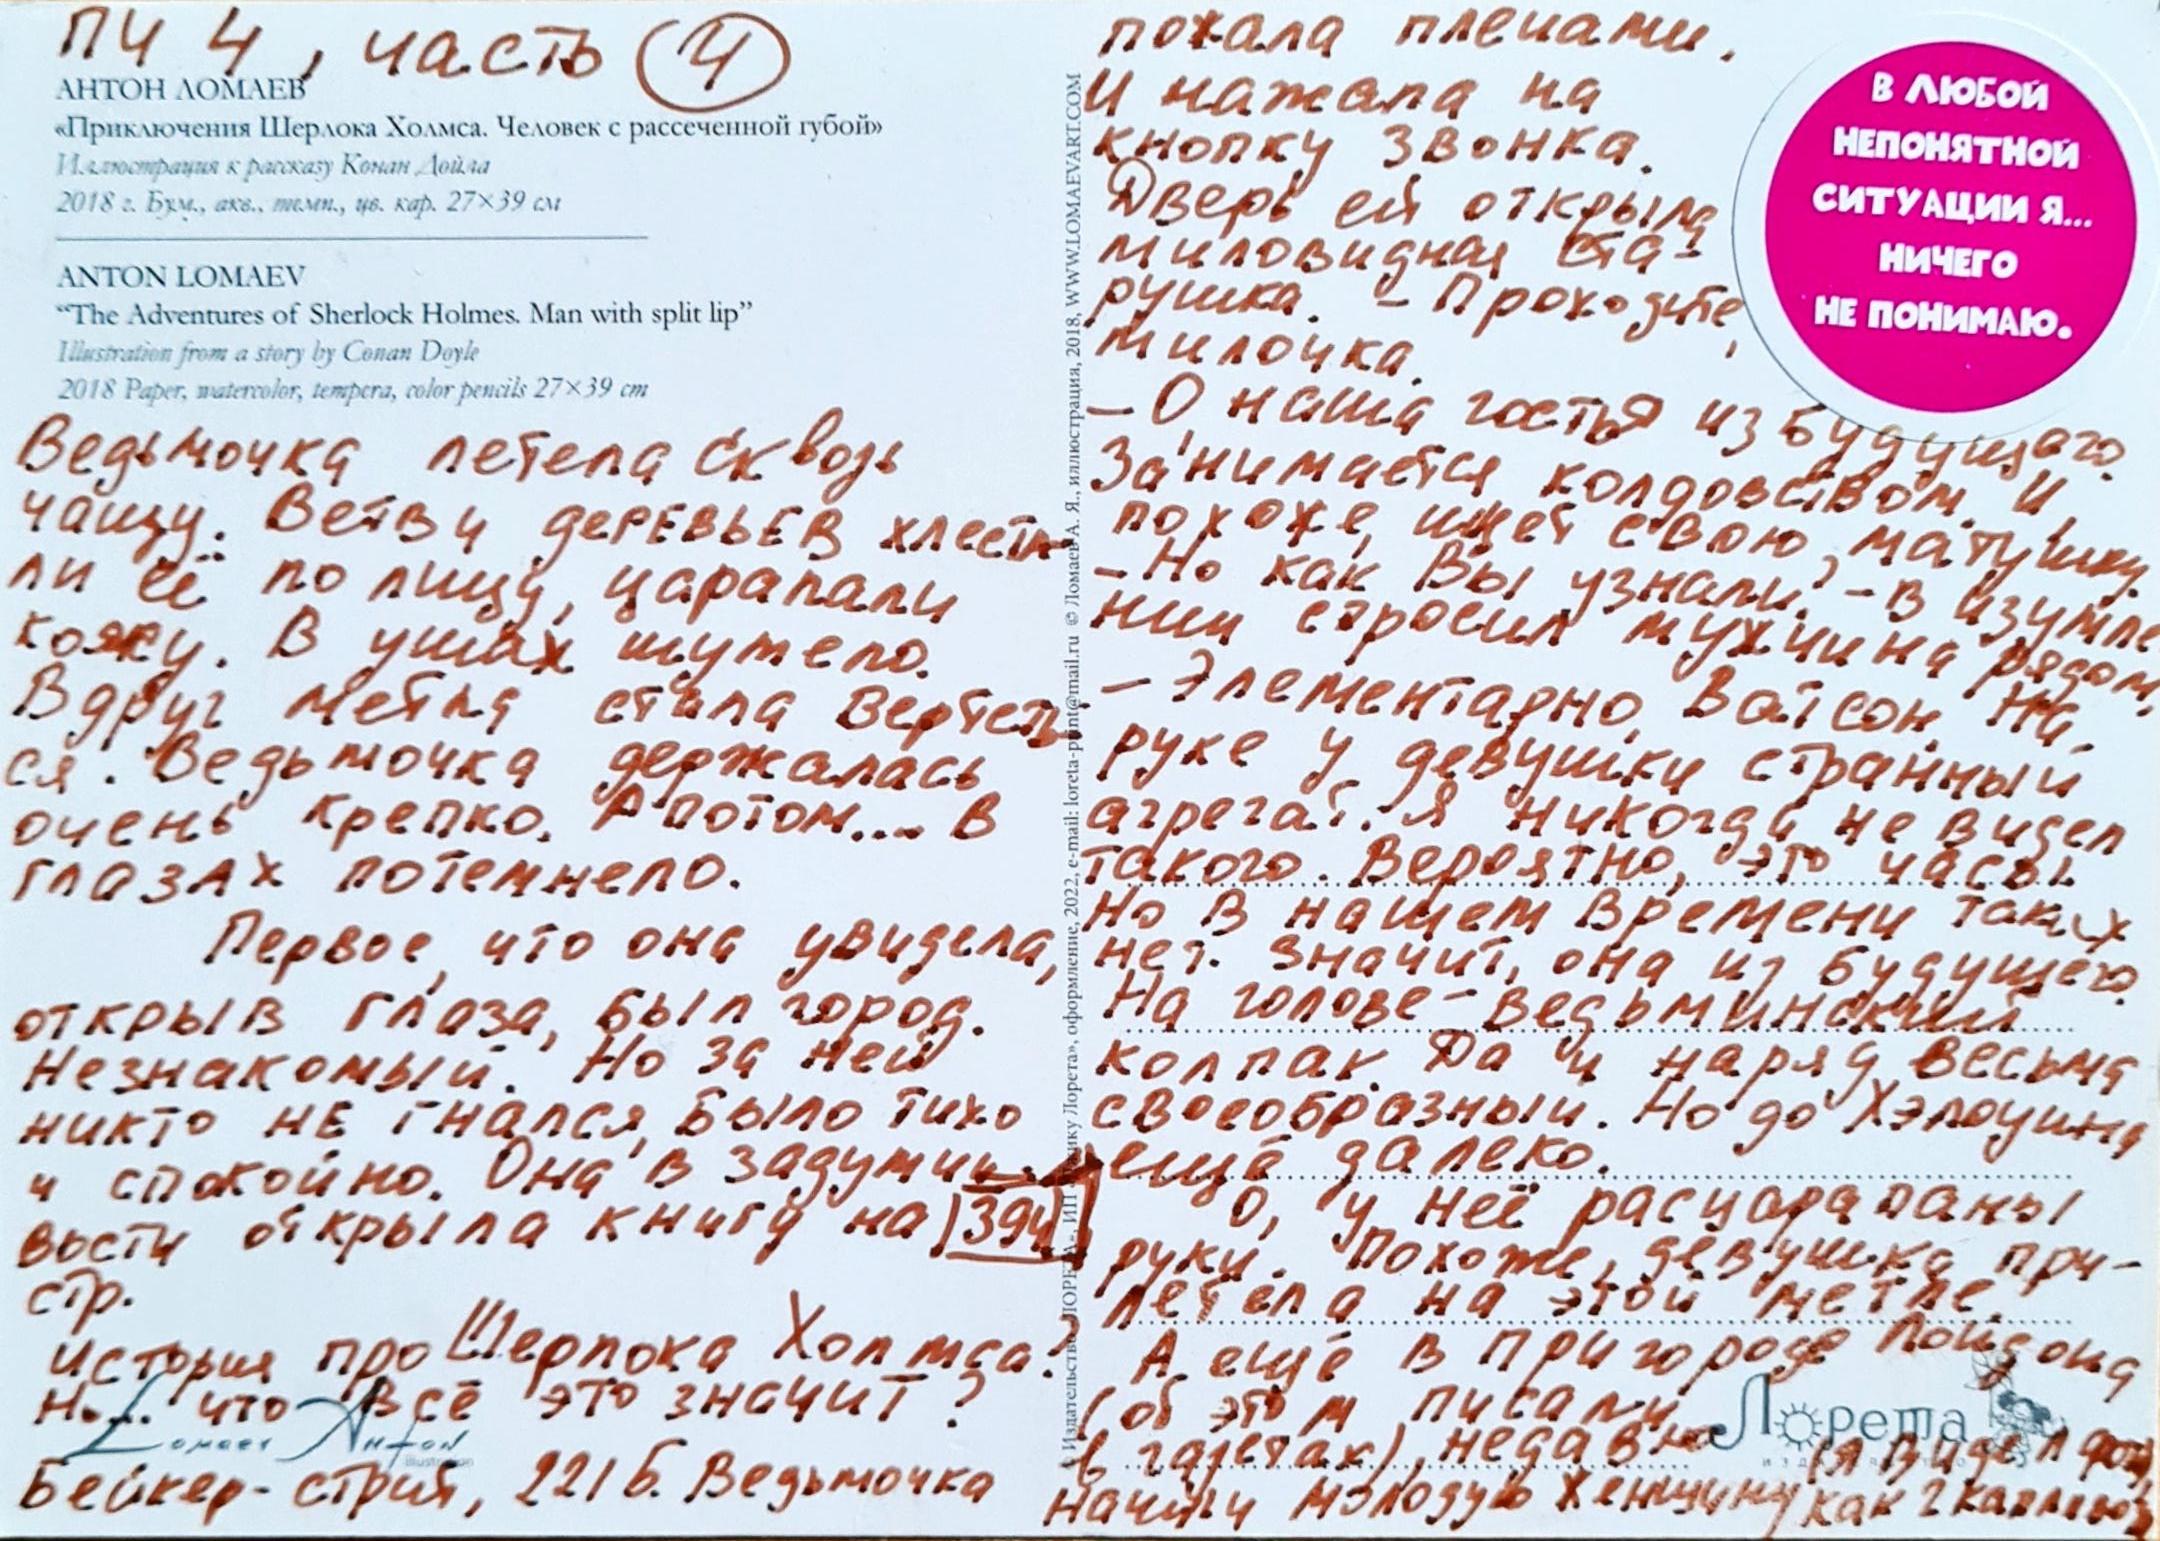 ПЧ 4, часть 4
АНТОН ЛОМАЕВ
«Приключения Шерлока Холмса. Человек с рассеченной губой»
Иллюстрация к рассказу Конан Дойла
2018 г. Бум., акв., темп., цв. кар. 27×39 см
ANTON LOMAEV
“The Adventures of Sherlock Holmes. Man with split lip”
Illustration from a story by Conan Doyle
2018 Paper, watercolor, tempera, color pencils 27×39 cm
Ведьмочка летела сквозь
чащу. Ветви деревьев хлеста-
ли её по лицу, царапали
кожу. В ушах шумело.
Вдруг метла стала вертеть-
ся. Ведьмочка держалась
очень крепко. А потом.... в
глазах потемнело.
Первое, что она увидела,
открыв глаза, был город.
Незнакомый. Но за ней
никто не гнался, было тихо
и спокойно. Она в задумчи-
вости открыла книгу на 394
стр.
История про Шерлока Холмса?
Но... что всё это значит?
Lomaev Anton
illustration
Бейкер-стрит, 221 б. Ведьмочка
© Издательство «ЛОРЕТА», ИП Лорета», оформление, 2022, e-mail: loreta-print@mail.ru © Ломаев А. Я., иллюстрация, 2018, WWW.LOMAEVART.COM
пожала плечами.
И нажала на
кнопку звонка.
Дверь ей открыла
миловидная ста-
рушка. - Проходите,
милочка.
- О наша гостья из будущего.
Занимается колдовством. И,
похоже, ищет свою матушку.
- Но как Вы узнали? - в изумле-
нии спросил мужчина рядом.
- Элементарно, Ватсон. На
руке у девушки странный
агрегат. Я никогда не видел
такого. Вероятно, это часы.
Но в нашем времени таких
нет. Значит, она из будущего.
На голове - ведьминский
колпак. Да и наряд весьма
своеобразный. Но до Хэлоуина
ещё далеко.
О, у неё расцарапаны
руки. Похоже, девушка при-
летела на этой метле.
А ещё в пригороде Лондона
(об этом писали
в газетах), недавно
нашли молодую женщину
(я видел фото,
как 2 капли
Лорета
ИЗДАТЕЛЬСТВО
В ЛЮБОЙ
НЕПОНЯТНОЙ
СИТУАЦИИ Я...
НИЧЕГО
НЕ ПОНИМАЮ.